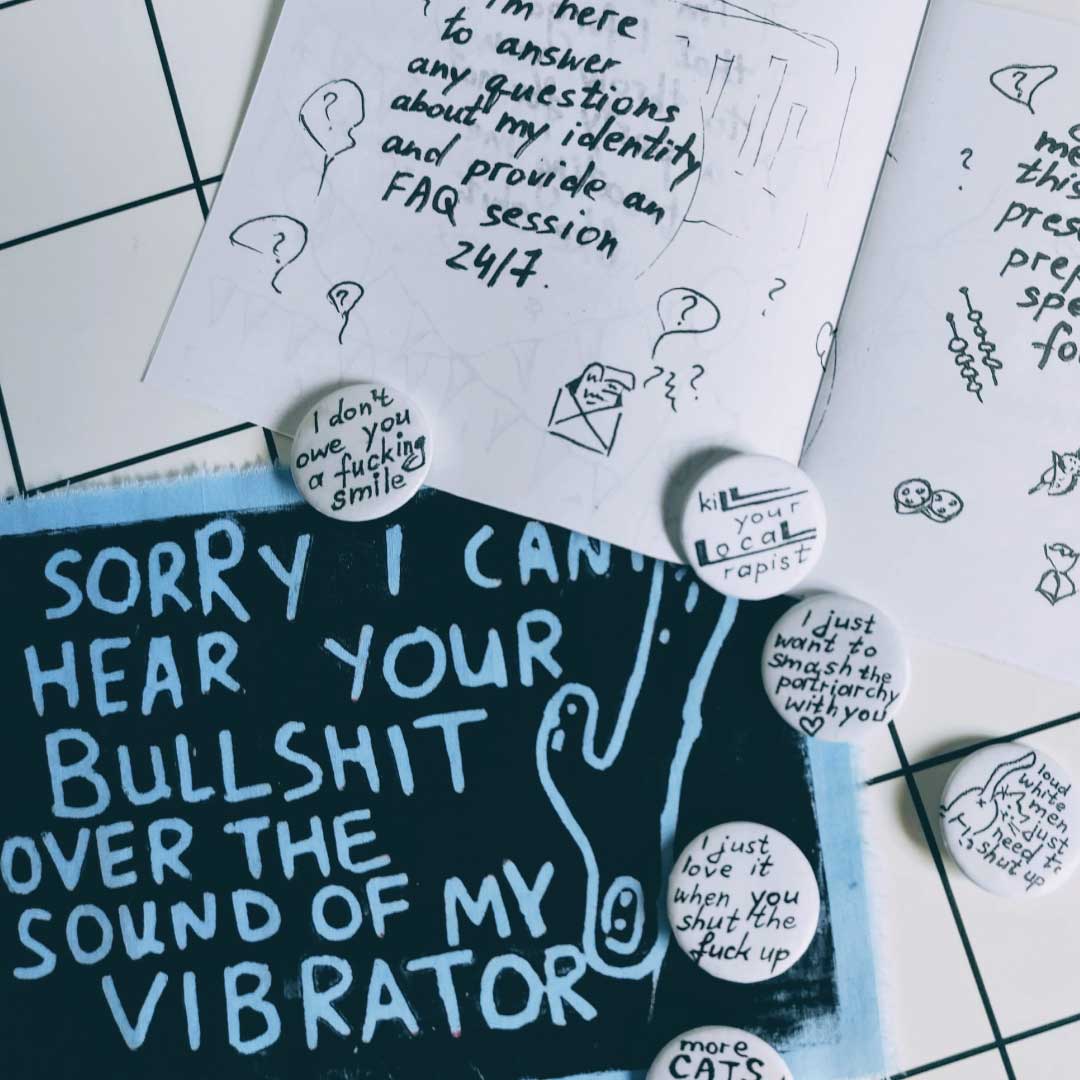 I'm here
to answer
any questions
about my identity
and provide an
FAQ session
24/7.
?
?
?
?
?
?
?
?
?
me
this
pres
prep
spe
fo
I don't
owe you
a fucking
smile
kiLL
your
LocaL
rapist
I just
want to
smash the
patriarchy
with you
loud
white
men
just
need to
shut up
I just
love it
when you
shut the
fuck up
more
CATS
SORRY I CAN'T
HEAR YOUR
BULLSHIT
OVER THE
SOUND OF MY
VIBRATOR